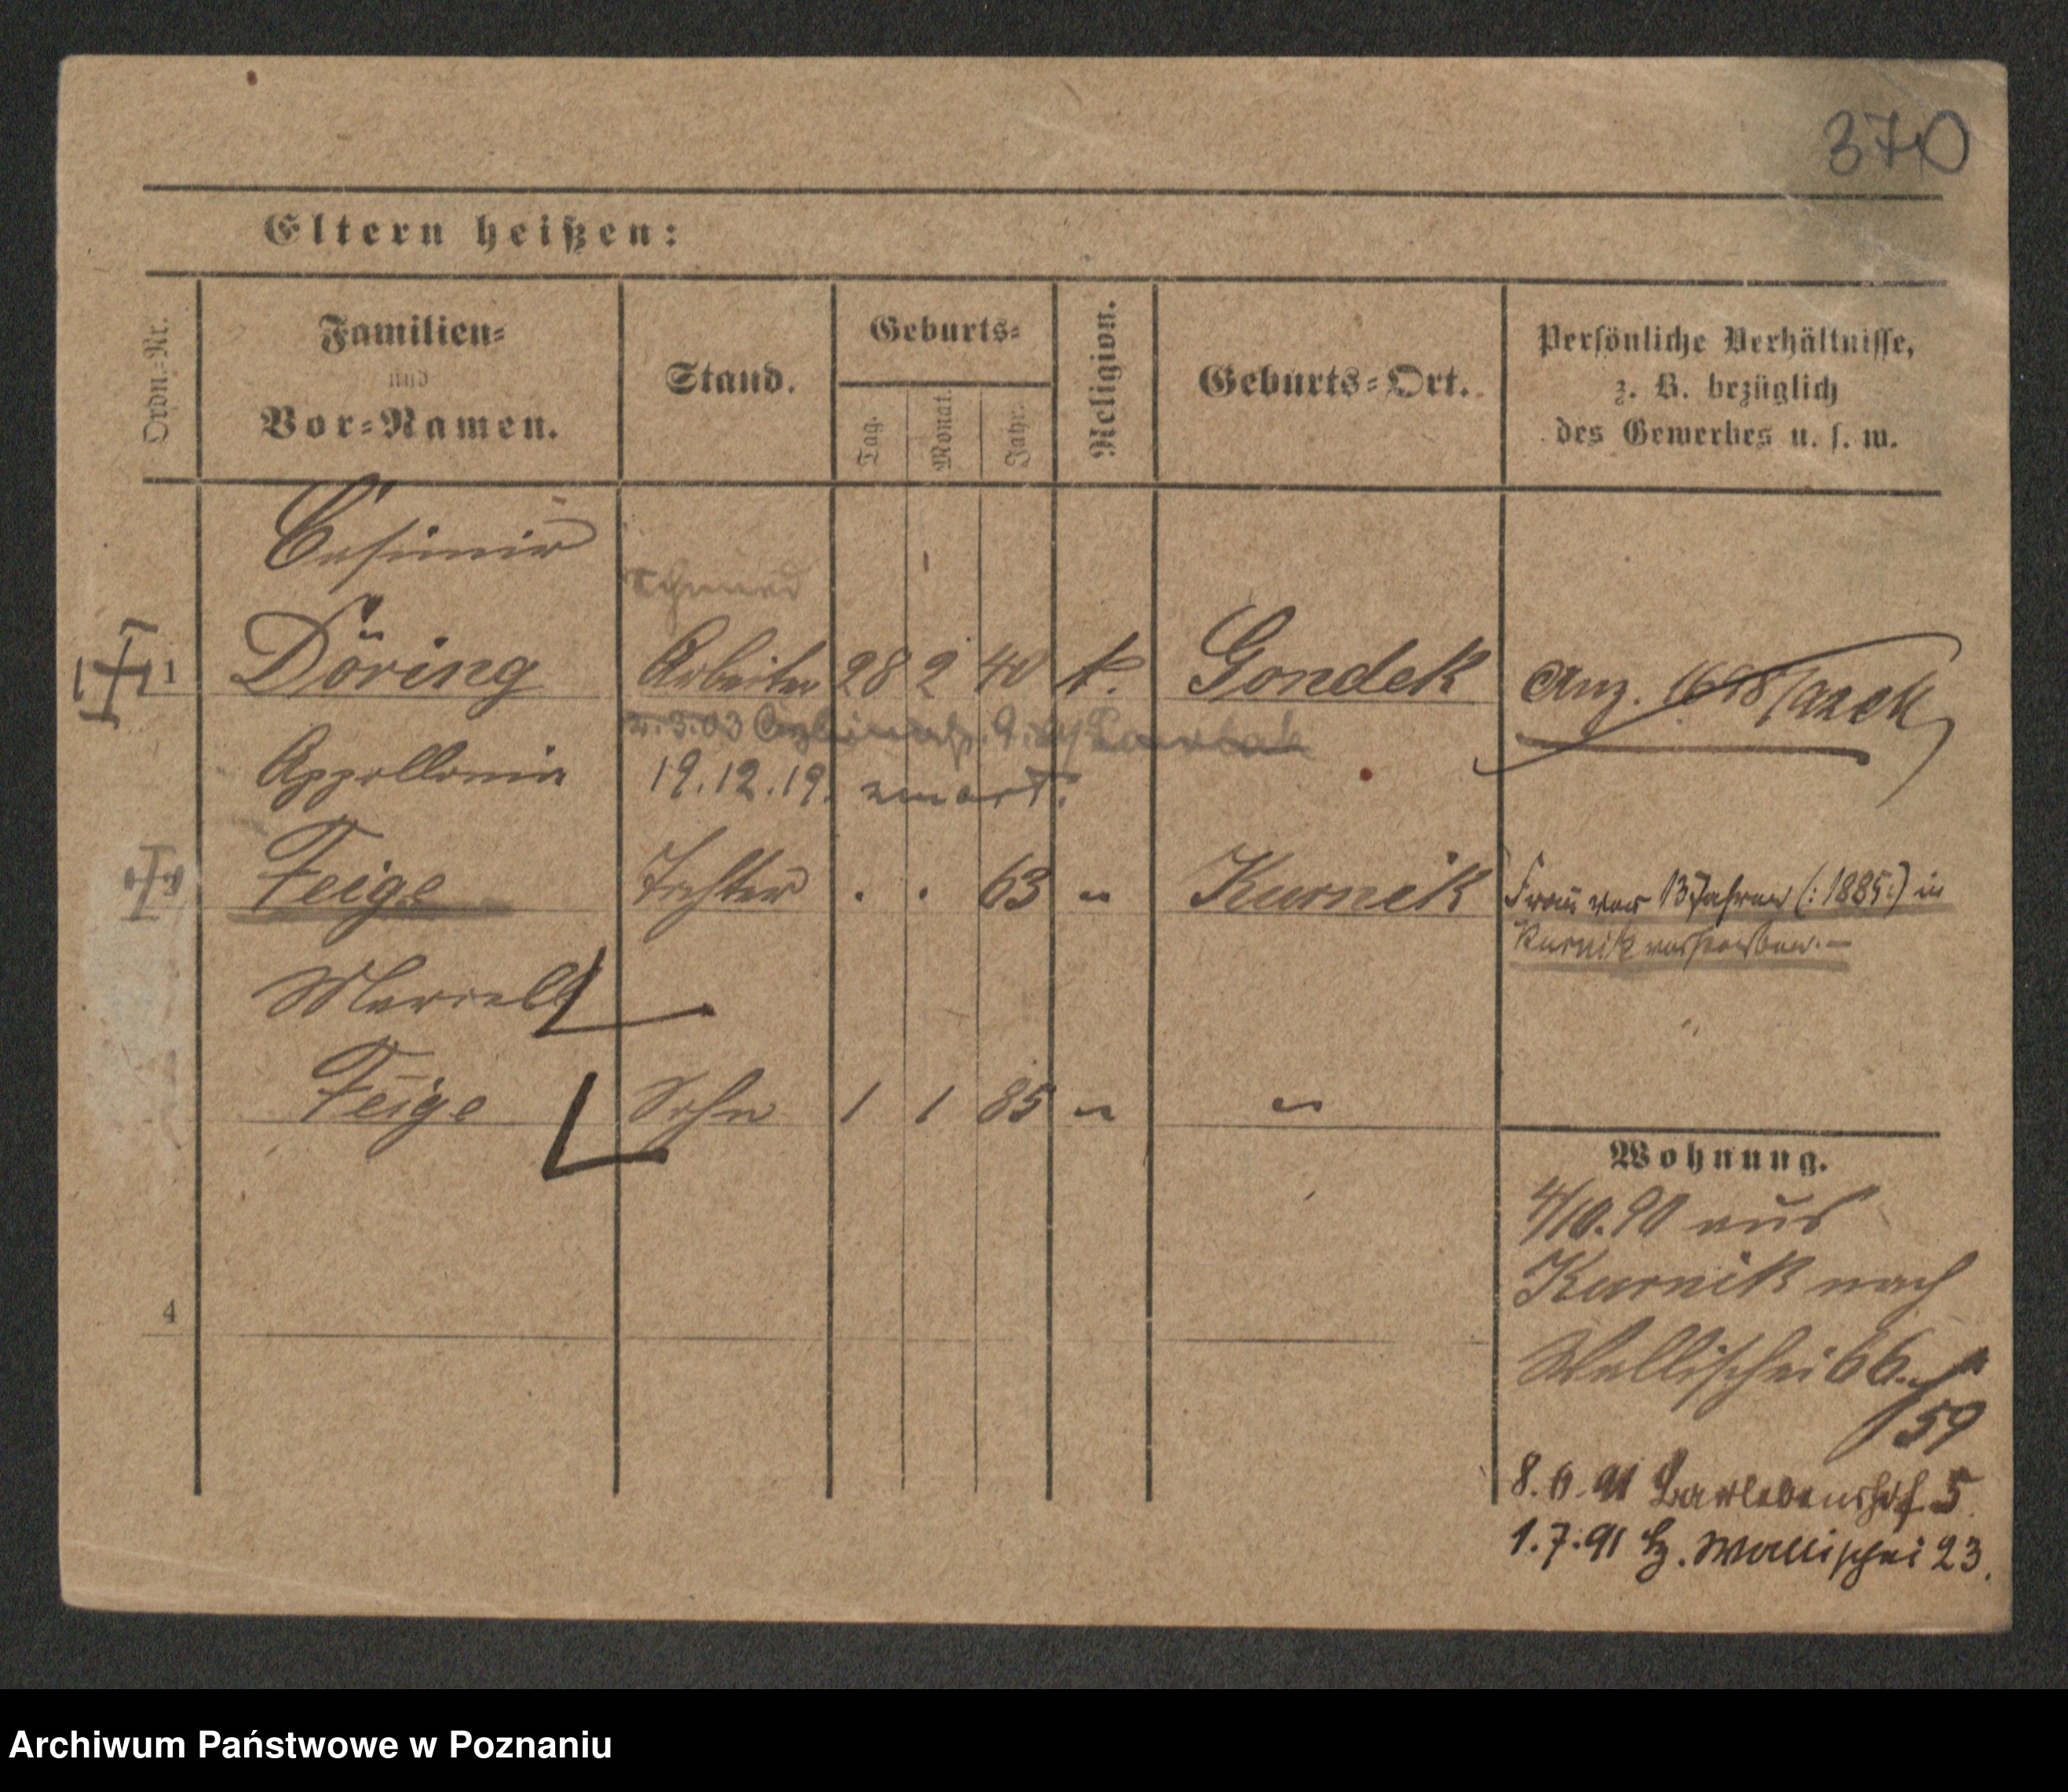 370
Eltern heißen:
Ordn.-Nr.
Familien-
und
Vor-Namen.
Stand.
Geburts-
Tag.
Monat.
Jahr.
Religion.
Geburts-Ort.
Persönliche Verhältnisse,
z. B. bezüglich
des Gewerbes u. s. w.
Casimir
Döring Arbeiter 28 2 40 k. Gondek Anz.
Appollonia 19.12.19.
Feige Tochter . . 63 " Kurnik Frau vor 13 Jahren (:1885:) in
Kurnik verstorben.-
Feige Sohn 1 1 85 " "
Wohnung.
4/10.90 aus
Kurnik nach
4
Wallischei 66.
59
8. 6. 91 Barlebenshof 5
1.7.91 Wallischei 23.
Archiwum Państwowe w Poznaniu